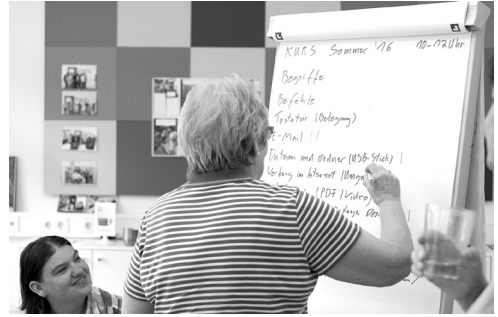 KURS Sommer '16 10-12 Uhr
Begriffe
Befehle
Tastatur (Belegung)
E-Mail ||
Dateien und Ordner (USB-Stick) |
Werbung im Internet
(PDF / Video)